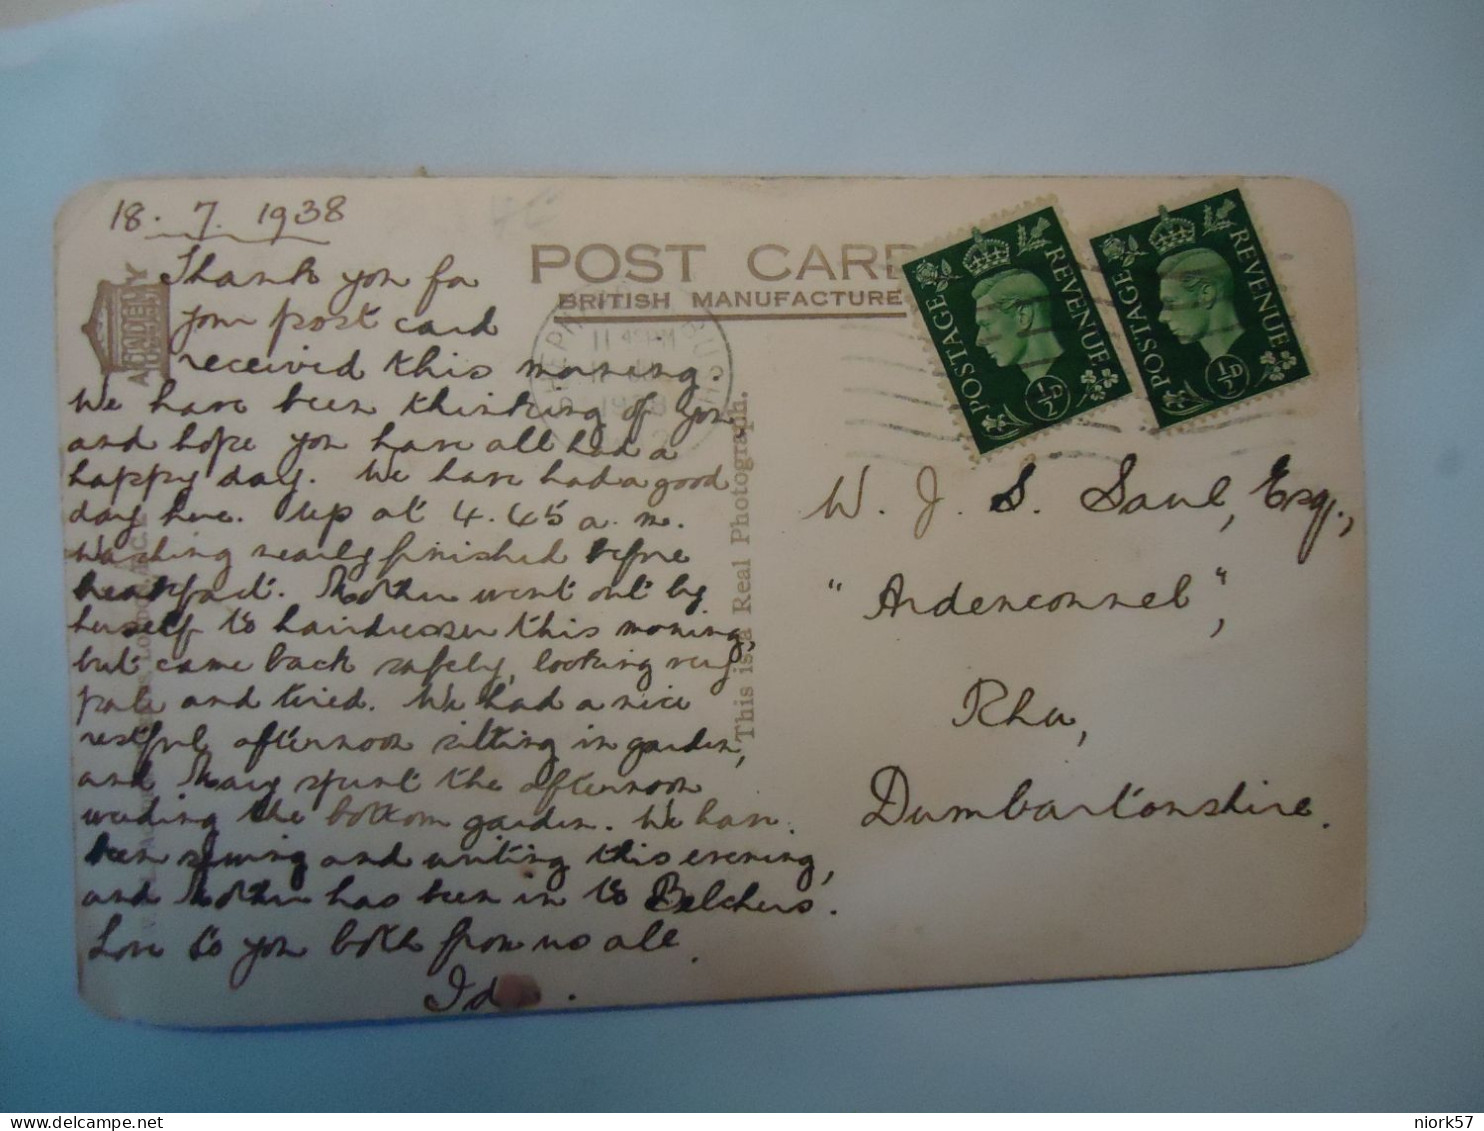 18. 7. 1938
Thank you for
your post card
received this morning.
We have been thinking of you,
and hope you have all had a
happy day. We have had a good
day here. Up at 4.45 a.m.
Washing nearly finished before
breakfast. Mother went out by
herself to hairdresser this morning,
but came back safely, looking very
pale and tired. We had a nice
restful afternoon sitting in garden,
and Mary spent the afternoon
weeding the bottom garden. We have
been sewing and writing this evening,
and Mother has been in to Belchers.
Love to you both from us all.
ACADEMY
POST CARD
BRITISH MANUFACTURE
1938
This is a Real Photograph.
POSTAGE REVENUE
½D
POSTAGE REVENUE
½D
W. J. S. Saul, Esq.,
"Ardenconnel",
Rhu,
Dumbartonshire.
niork57